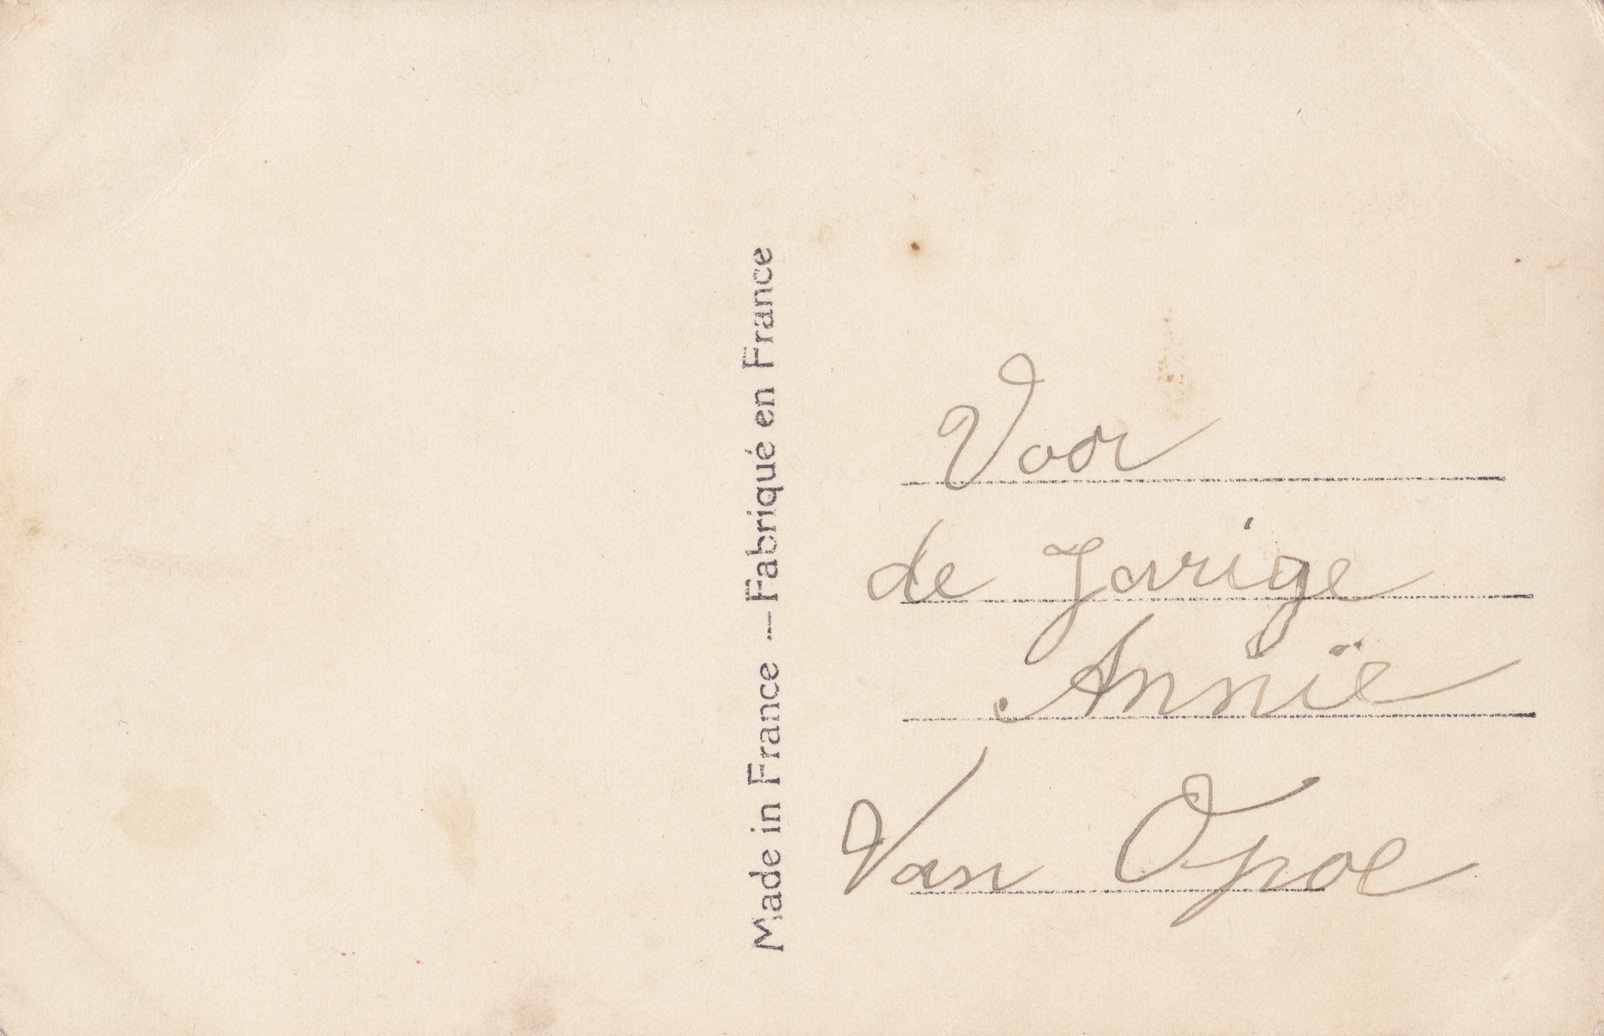 Made in France — Fabriqué en France
Voor
de Jarige
Annië
Van Opoe